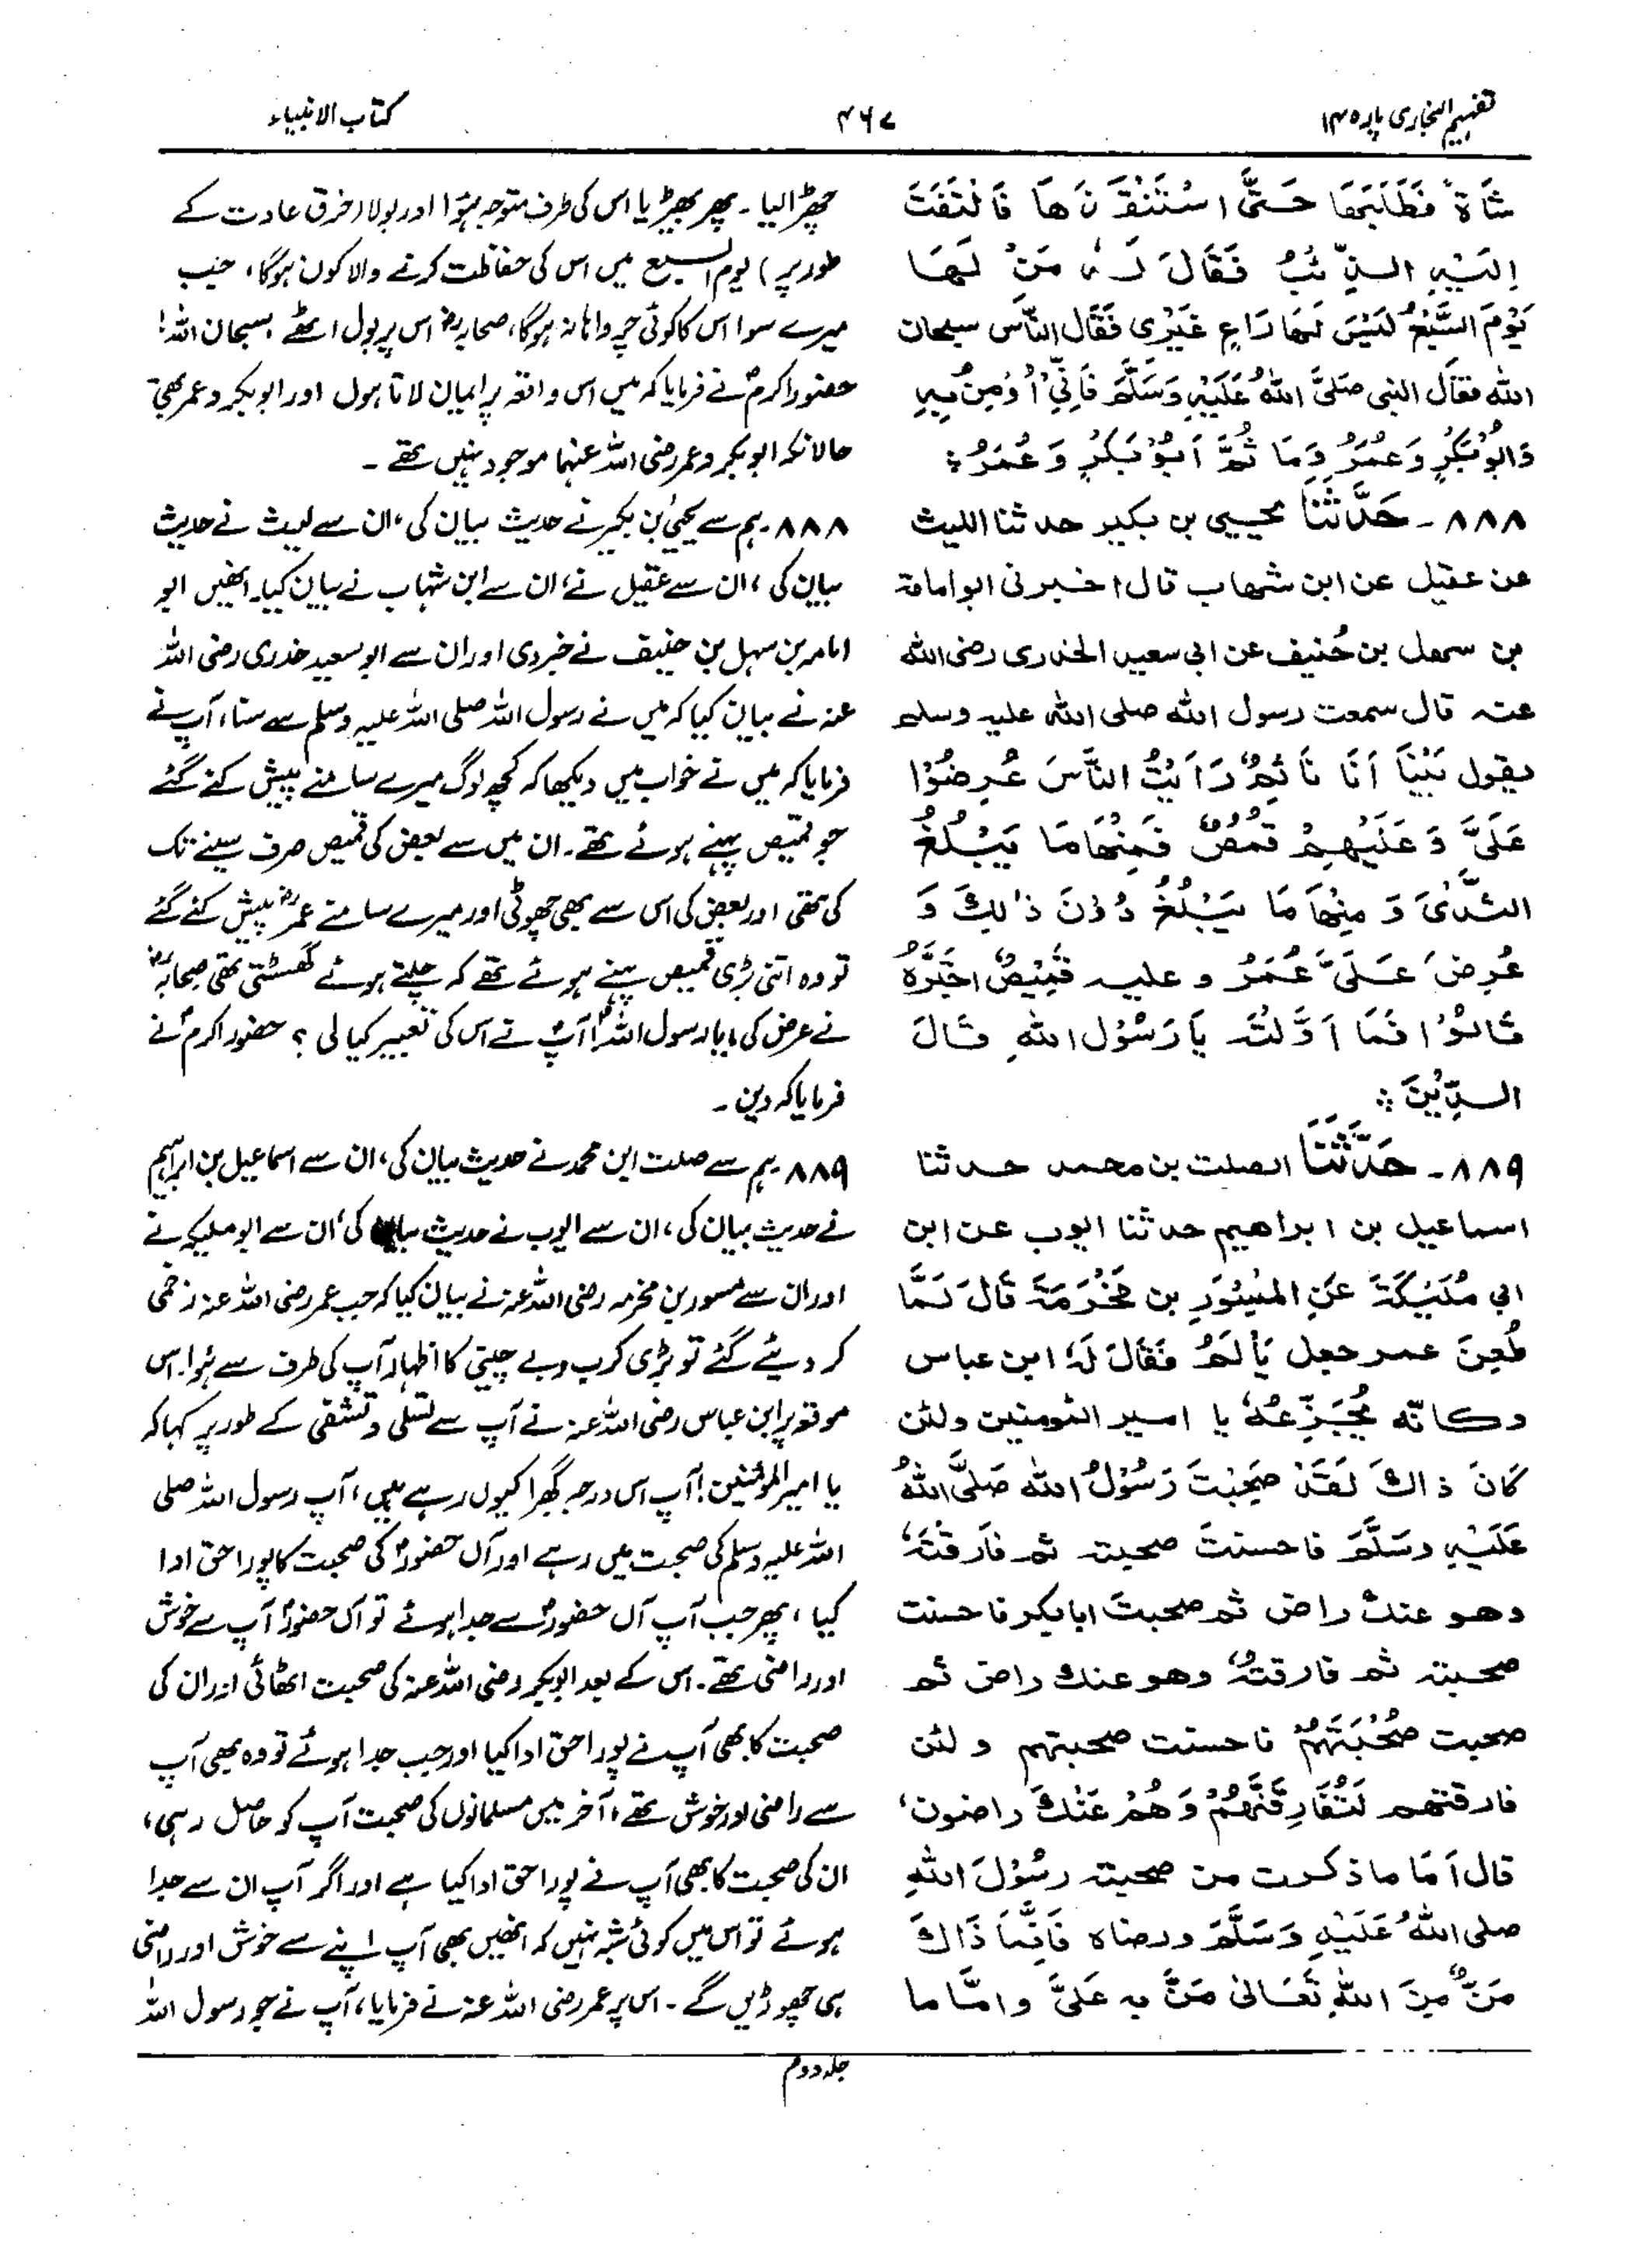 تفہیم البخاری پارہ ۱۴
۴۶۷
کتاب الانبیاء
شَاةً فَطَلَبَهَا حَتَّى اسْتَنْقَذَهَا فَالْتَفَتَ
اِلَيْهِ الذِّئْبُ فَقَالَ لَهُ مَنْ لَهَا
يَوْمَ السَّبُعِ لَيْسَ لَهَا رَاعٍ غَيْرِى فَقَالَ النَّاس سبحان
الله فقال النبى صَلَّى اللهُ عَلَيْهِ وَسَلَّمَ فَاِنِّىْ اُوْمِنُ بِهِ
وَاَبُوْبَكْرٍ وَعُمَرُ وَمَا ثَمَّ اَبُوْبَكْرٍ وَعُمَرُ ؛
۸۸۸۔ حَدَّثَنَا يحيى بن بكير حدثنا الليث
عن عقيل عن ابن شهاب قال اخبرنى ابوامامة
بن سهل بن حُنيف عن ابى سعيد الخدرى رضى الله
عنه قال سمعت رسول الله صلى الله عليه وسلم
يقول بَيْنَا اَنَا نَائِمٌ رَاَيْتُ النَّاسَ عُرِضُوْا
عَلَىَّ وَعَلَيْهِمْ قُمُصٌ فَمِنْهَا مَا يَبْلُغُ
الثَّدْىَ وَمِنْهَا مَا يَبْلُغُ دُوْنَ ذٰلِكَ وَ
عُرِضَ عَلَىَّ عُمَرُ و عليه قَمِيْصٌ اجْتَرَّهُ
قَالُوْا فَمَا اَوَّلْتَهُ يَا رَسُوْلَ اللهِ قَالَ
الدِّيْنَ ؛
۸۸۹۔ حَدَّثَنَا الصلت بن محمد حدثنا
اسماعيل بن ابراهيم حدثنا ايوب عن ابن
ابى مُلَيْكَةَ عَنِ الْمِسْوَرِ بن مَخْرَمَةَ قَالَ لَمَّا
طُعِنَ عمر جعل يَأْلَمُ فَقَالَ لَهُ ابن عباس
وكانه يُجَزِّعُهُ يا امير المؤمنين ولئن
كَانَ ذاكَ لَقَدْ صَحِبْتَ رَسُوْلَ اللهِ صَلَّى اللهُ
عَلَيْهِ وَسَلَّمَ فاحسنتَ صحبته ثم فارقتَهُ
وهو عنك راض ثم صحبتَ ابابكر فاحسنت
صحبته ثم فارقتَهُ وهو عنك راض ثم
صحبت صُحْبَتَهُمْ فاحسنت صحبتهم و لئن
فارقتهم لَتُفَارِقَنَّهُمْ وَهُمْ عَنْكَ راضون،
قال اَمَّا ماذكرت من صحبته رسُوْلَ اللهِ
صلى اللهُ عَلَيْهِ وَسَلَّمَ ورضاه فَاِنَّمَا ذَاكَ
مَنٌّ مِّنَ اللهِ تَعَالىٰ مَنَّ به عَلَىَّ واَمَّا ما
چھڑا لیا ۔ پھر بھیڑیا اس کی طرف متوجہ ہؤا اور بولا (خرق عادت کے
طور پر) یوم السبع میں اس کی حفاظت کرنے والا کون ہوگا، جب
میرے سوا اس کا کوئی چرواہا نہ ہوگا، صحابہؓ اس پر بول اٹھے، سبحان اللہ!
حضور اکرمؐ نے فرمایا کہ میں اس واقعہ پر ایمان لاتا ہوں اور ابوبکر و عمر بھی،
حالانکہ ابوبکر و عمر رضی اللہ عنہما موجود نہیں تھے ۔
۸۸۸۔ ہم سے یحییٰ بن بکیر نے حدیث بیان کی، ان سے لیث نے حدیث
بیان کی، ان سے عقیل نے، ان سے ابن شہاب نے بیان کیا۔ انھیں ابو
امامہ بن سہل بن حنیف نے خبر دی اور ان سے ابو سعید خدری رضی اللہ
عنہ نے بیان کیا کہ میں نے رسول اللہ صلی اللہ علیہ وسلم سے سنا، آپ نے
فرمایا کہ میں نے خواب میں دیکھا کہ کچھ لوگ میرے سامنے پیش کئے گئے
جو قمیص پہنے ہوئے تھے۔ ان میں سے بعض کی قمیص صرف سینے تک
کی تھی اور بعض کی اس سے بھی چھوٹی اور میرے سامنے عمرؓ پیش کئے گئے
تو وہ اتنی بڑی قمیص پہنے ہوئے تھے کہ چلتے ہوئے گھسٹتی تھی صحابہؓ
نے عرض کی، یا رسول اللہؐ! آپؐ نے اس کی تعبیر کیا لی ؟ حضور اکرمؐ نے
فرمایا کہ دین ۔
۸۸۹۔ ہم سے صلت ابن محمد نے حدیث بیان کی، ان سے اسماعیل بن ابراہیم
نے حدیث بیان کی، ان سے ایوب نے حدیث بیان کی، ان سے ابو ملیکہ نے
اور ان سے مسور بن مخرمہ رضی اللہ عنہ نے بیان کیا کہ جب عمر رضی اللہ عنہ زخمی
کر دیئے گئے تو بڑی کرب و بے چینی کا اظہار آپ کی طرف سے ہؤا۔ اس
موقعہ پر ابن عباس رضی اللہ عنہ نے آپ سے تسلی و تشفی کے طور پر کہا کہ
یا امیر المؤمنین! آپ اس درجہ گھبرا کیوں رہے ہیں، آپ رسول اللہ صلی
اللہ علیہ وسلم کی صحبت میں رہے اور آں حضورؐ کی صحبت کا پورا حق ادا
کیا، پھر جب آپ آں حضورؐ سے جدا ہوئے تو آں حضورؐ آپ سے خوش
اور راضی تھے۔ اس کے بعد ابوبکر رضی اللہ عنہ کی صحبت اٹھائی اور ان کی
صحبت کا بھی آپ نے پورا حق ادا کیا اور جب جدا ہوئے تو وہ بھی آپ
سے راضی اور خوش تھے، آخر میں مسلمانوں کی صحبت آپ کو حاصل رہی،
ان کی صحبت کا بھی آپ نے پورا حق ادا کیا ہے اور اگر آپ ان سے جدا
ہوئے تو اس میں کوئی شبہ نہیں کہ انھیں بھی آپ اپنے سے خوش اور راضی
ہی چھوڑیں گے ۔ اس پر عمر رضی اللہ عنہ نے فرمایا، آپ نے جو رسول اللہ
جلد دوم